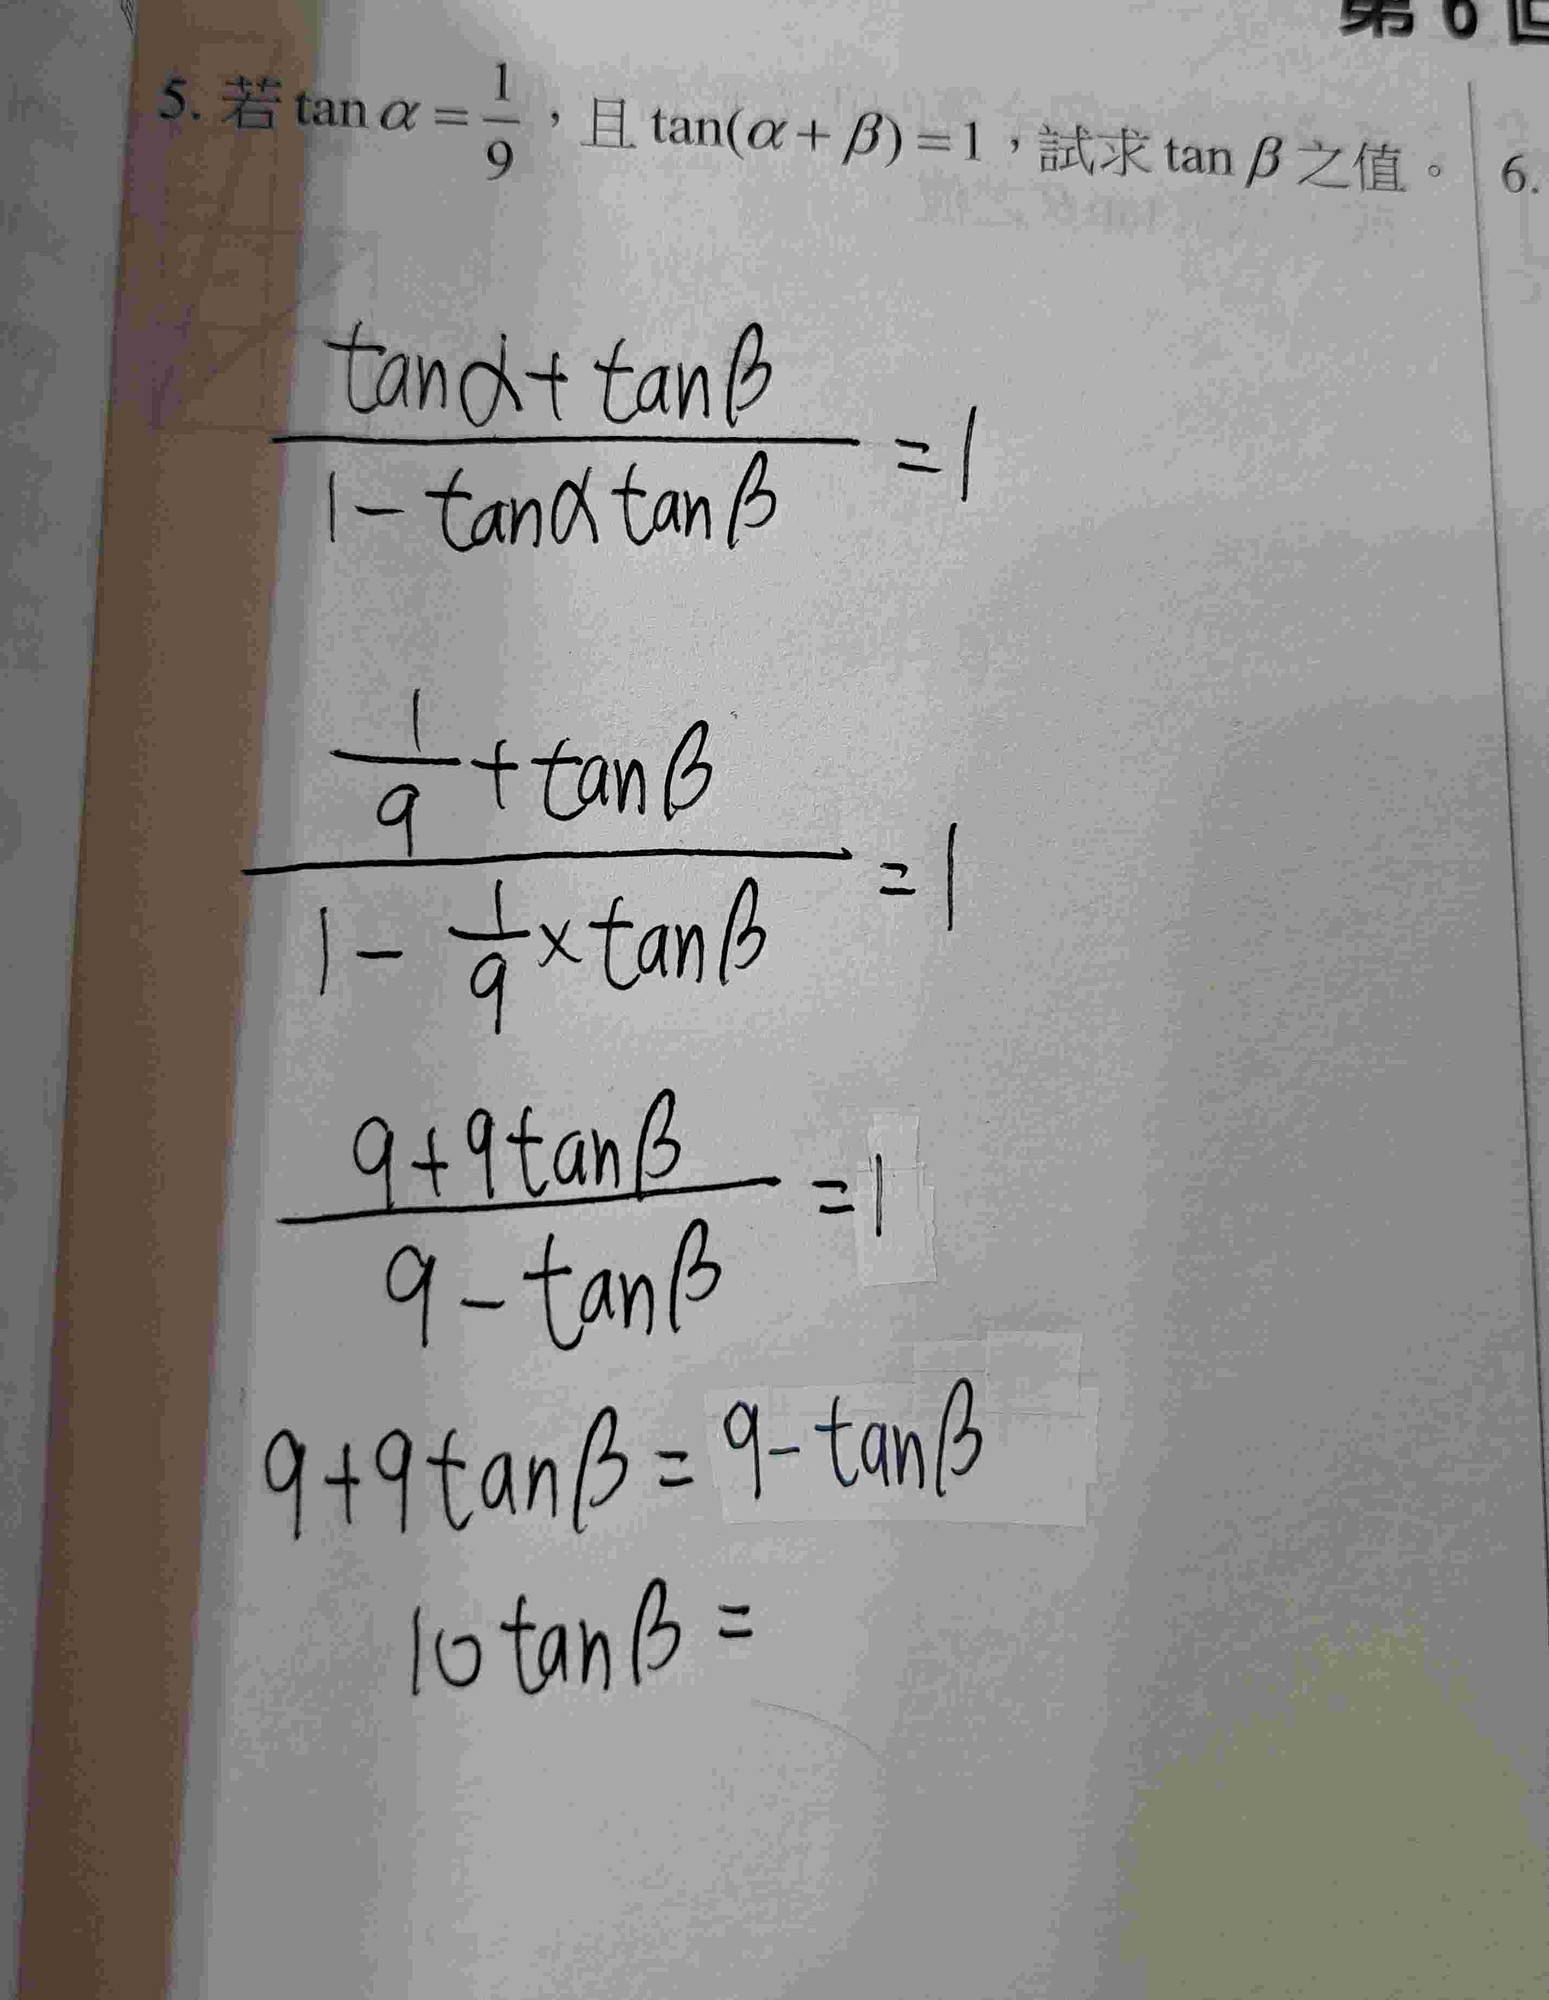 第 6 回
5. 若 tan α = 1/9，且 tan(α + β) = 1，試求 tan β 之值。
6.
(tanα + tanβ)/(1 - tanα tanβ) = 1
(1/9 + tanβ)/(1 - 1/9 × tanβ) = 1
(9 + 9tanβ)/(9 - tanβ) = 1
9 + 9tanβ = 9 - tanβ
10 tanβ =